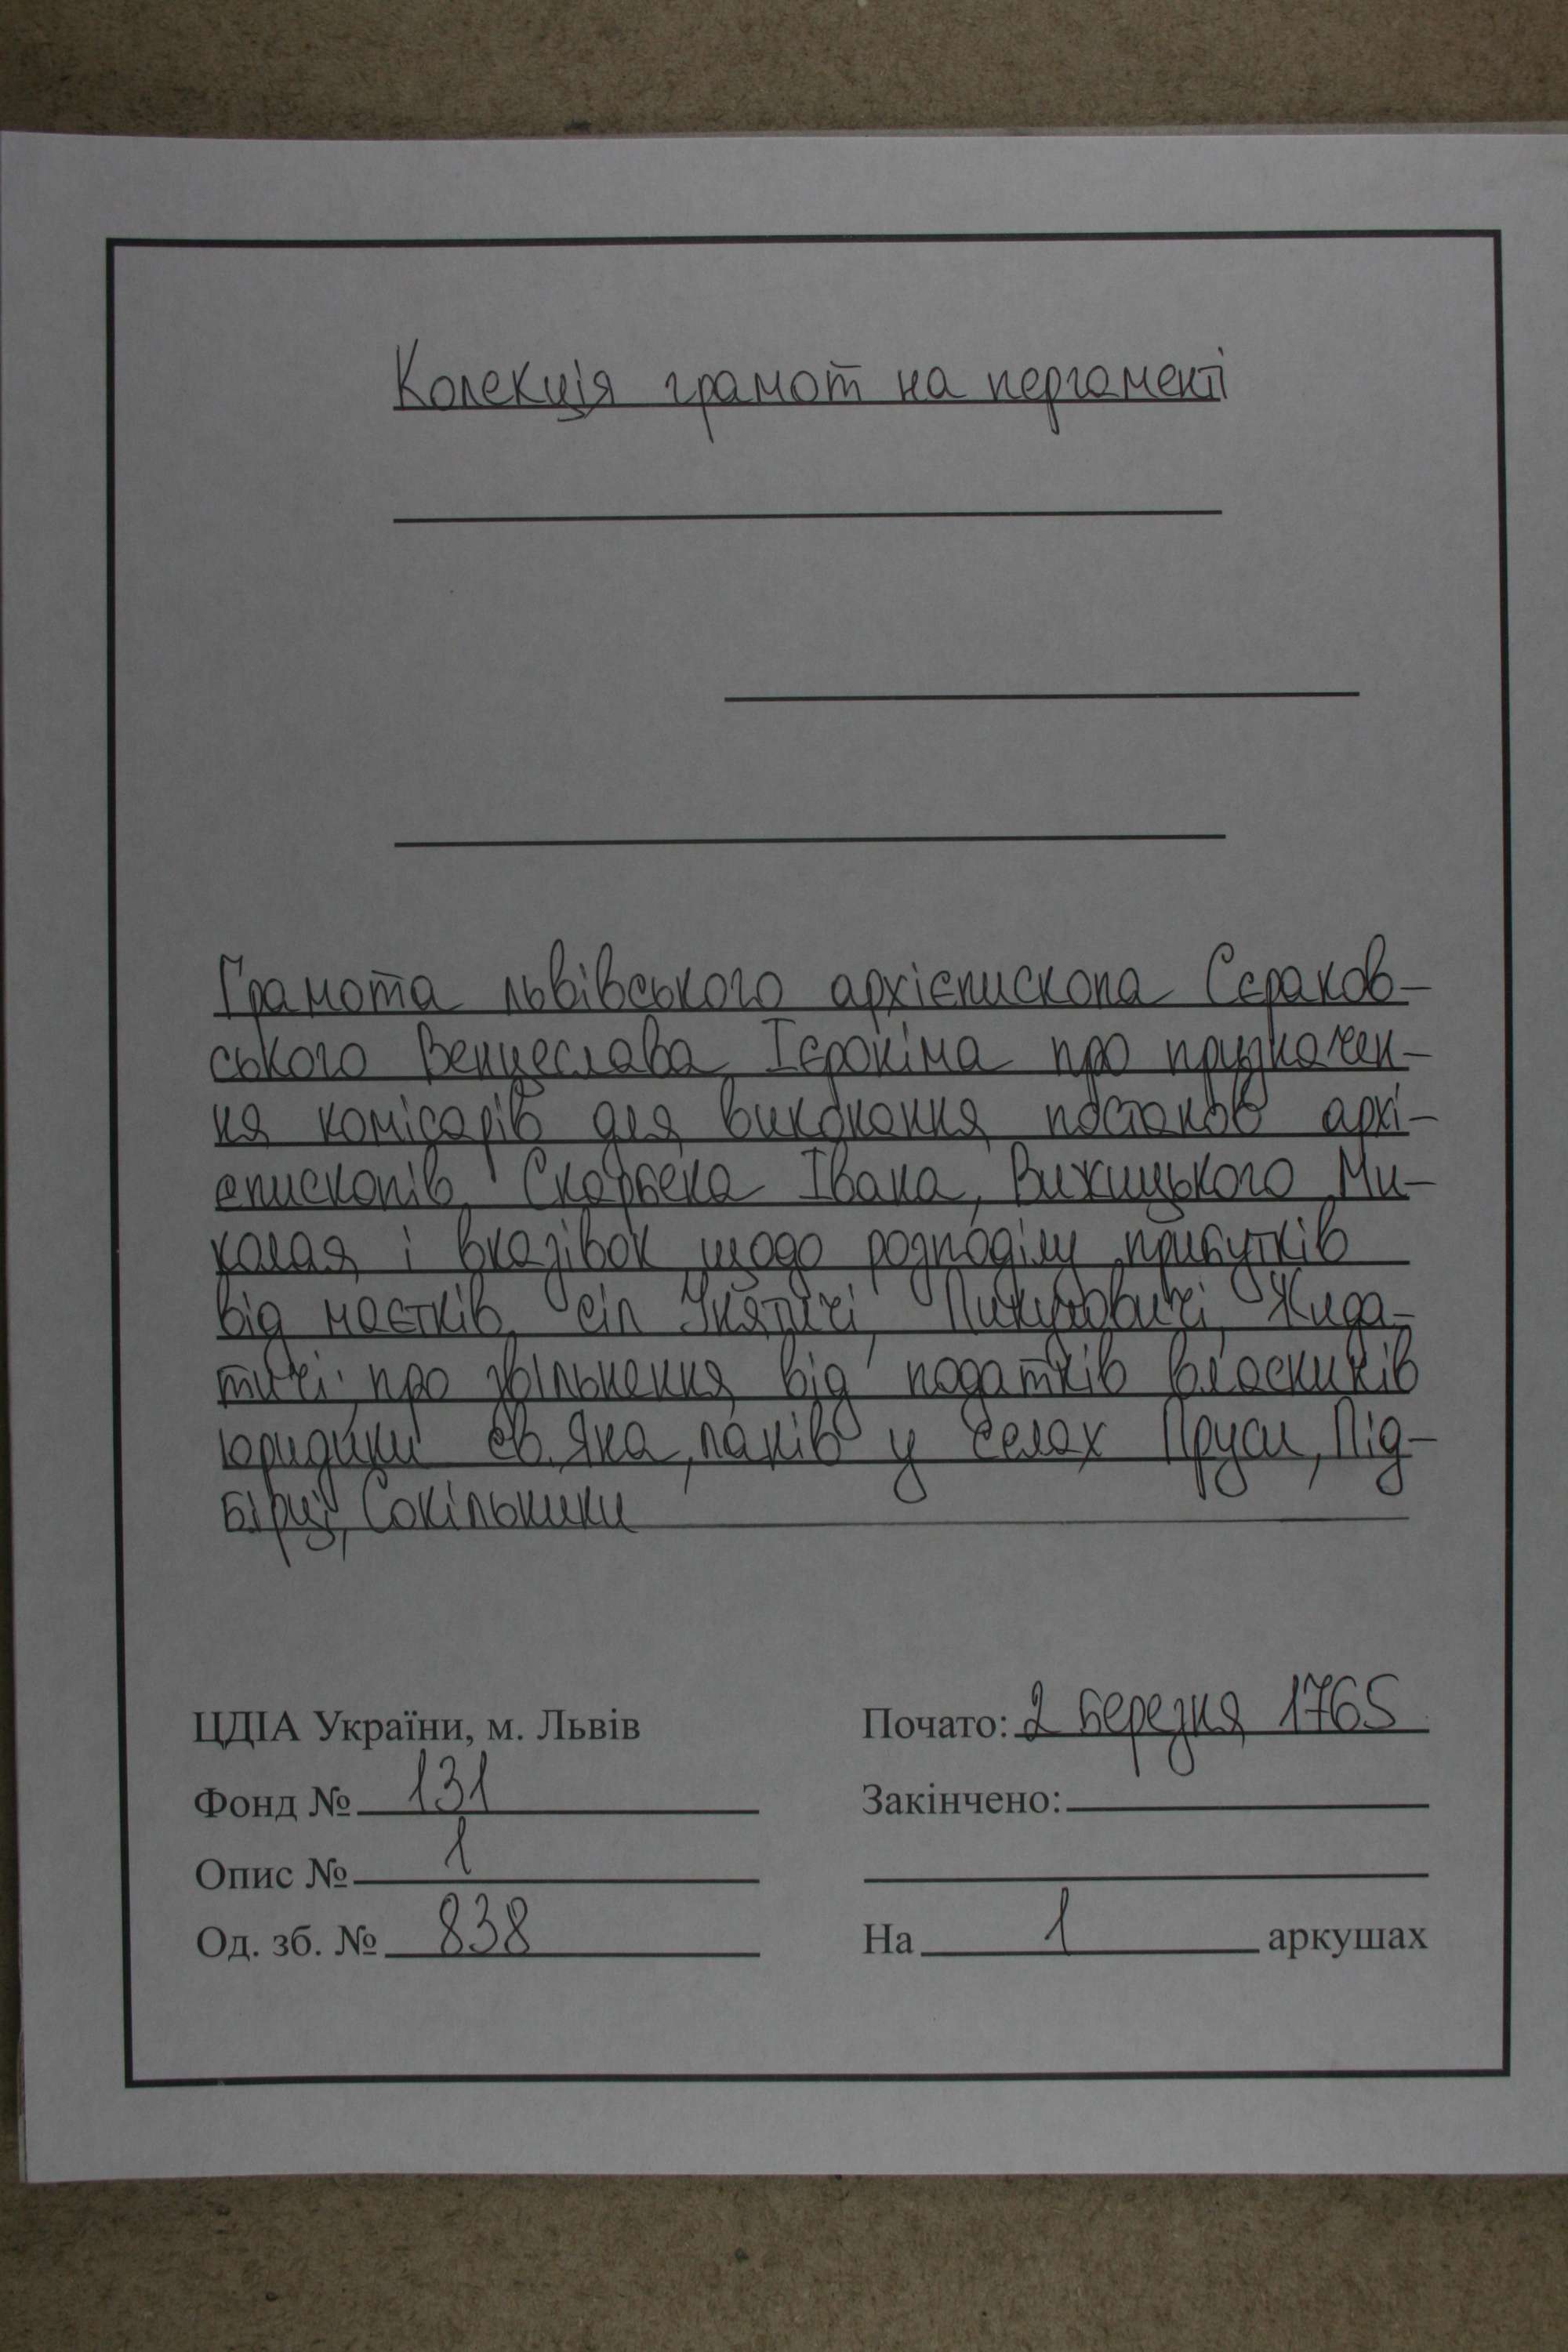 Колекція грамот на пергаменті
Грамота львівського архієпископа Сєраков-
ського Венцеслава Ієроніма про призначен-
ня комісарів для виконання постанов архі-
єпископів Скарбека Івана, Вижицького Ми-
колая і вказівок щодо розподілу прибутків
від маєтків сіл Жида-
тичі; про звільнення від податків власників
юридики св. Яна, ланів у селах Пруси, Під-
бірці, Сокільники
ЦДІА України, м. Львів
Фонд № 131
Опис № 1
Од. зб. № 838
Почато: 2 березня 1765
Закінчено:
На 1 аркушах